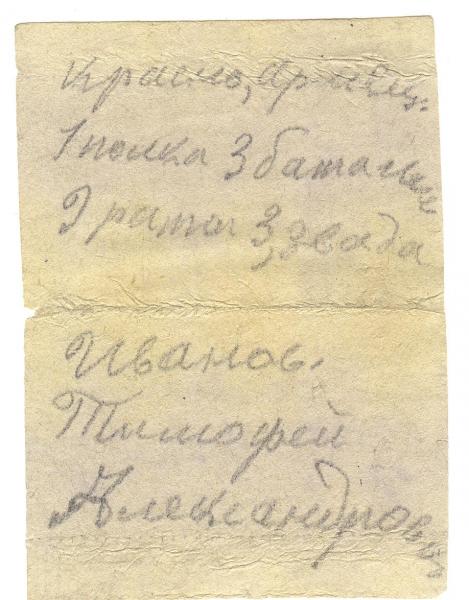 Красно, армеец.
1 полка 3 баталион
9 роты 3, звода
Иванов.
Тимофей
Александрович